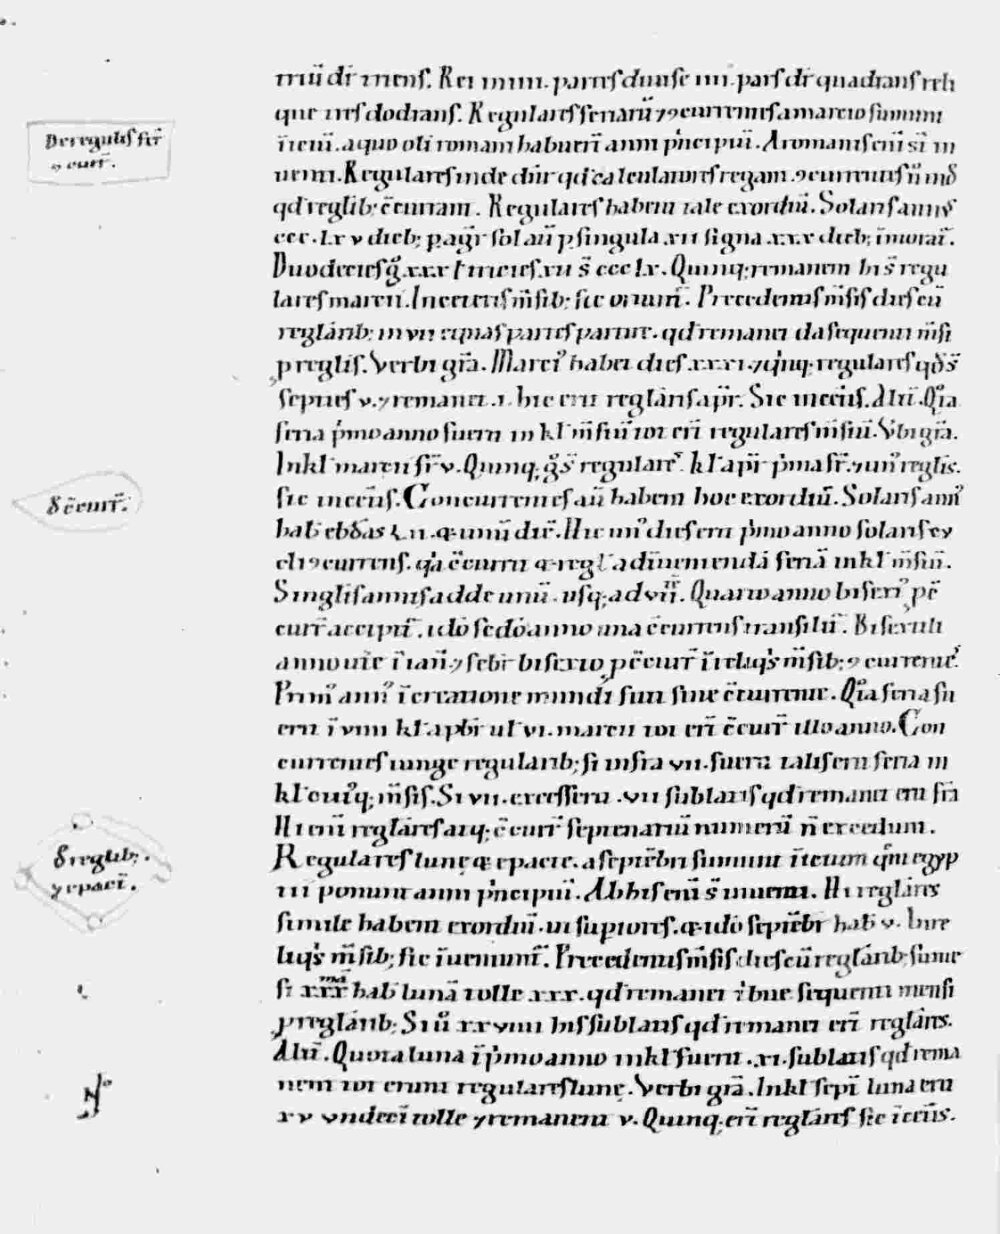 De regulis fer̄
⁊ curr̄.
qͥ; tres dodrans. Regulares feriarū ⁊ ɔcurrentes a marcio sumunt
īitiū. a quo oli romani habuer̄ anni pͥncipiū. A romanis eni si in
uenti. Regulares inde dūr qd calculatores regant. ɔcurrentes ū̆ md̄
qd reglib; c̄currant. Regulares habent tale exordiū. Solaris annus
ccc.lxv dieb; pagr̄ sol aū p singula xii signa .xxx dieb; īmorat̄.
Duodecies g̊ xxx ł tricies xii s̄ ccc lx. Quinq; remanent hi s̄ regu
lares marcii. In ceteris m̄sib; sic oriunt̄. Precedentis m̄sis dies cū
reglarib; in vii equas partes partire. qd remanet da sequenti m̄si
p reglis. Verbi grā. Marciꝰ habet dies xxxi ⁊ qͥnq; regulares
septies v. ⁊ remanet .i. hic erit reglaris apr̄. Sic in cet̄is. Alit̄. Qͣ
feria pͥmo anno fuerit in kł m̄siū tot er̄t regulares m̄siū. Vbi grā.
In kł marcii fr̄ v. Quinq; g̊ s̄ regulareſ. kł apr̄ pͥma fr̄. ⁊ unꝰ reglis.
sic in cet̄is. Concurrentes aū habent hoc exordiū. Solaris annꝰ
De c̄curr̄.
hab̄ ebd̄as lii. & unū diē. Hic unꝰ dies erit pͥmo anno solaris cy
cli ɔcurrens. qͣ c̄currit & regł ad inueniendā feriā in kł m̄siū.
Singlis annis adde unū. usq; ad vii. Quarto anno bisextꝰ
curr̄ accipit̄. ido sedo anno una c̄currens transilit̄. Bisextili
Primꝰ annꝰ ī creatione mundi fuit sine c̄currente. Qͣ feria fu
erit ī viiii kł apł ut vi. marcii tot er̄t c̄curr̄ illo anno. Con
currentes iunge regularib; si infra vii. fuerit talis erit feria in
kł cuiꝰq; m̄sis. Si vii. excesserit .vii sublatis qd remanet erit fr̄a
Hi eni reglares atq; c̄curr̄ septenariū numerū n̄ excedunt.
De reglib;.
⁊ epact̄.
Regulares lunę & epacte. a septēbri sumunt īitium qͥm egyp
tii ponunt anni pͥncipiū. Ab his eni s̄ inuenti. Hi reglares
simile habent exordiū. ut supiores. & ido septēbr hab̄ v. In re
liqͥs m̄sib; sic īueniunt̄. Precedentis m̄sis dies cū reglarib; sume
si xxx hab̄ lunā tolle xxx. qd remanet tͥbue sequenti mensi
p reglarib; Si ū̆ xxviiii his sublatis qd remanet er̄t reglares.
Alit̄. Quota luna ī pͥmo anno in kł fuerit .xi. sublatis qd rema
nent tot erunt regulares lunę. Verbi grā. In kł sept̄ luna erit
xv vndeci tolle ⁊ remanent v. Quinq; er̄t reglares sic ī cet̄is.